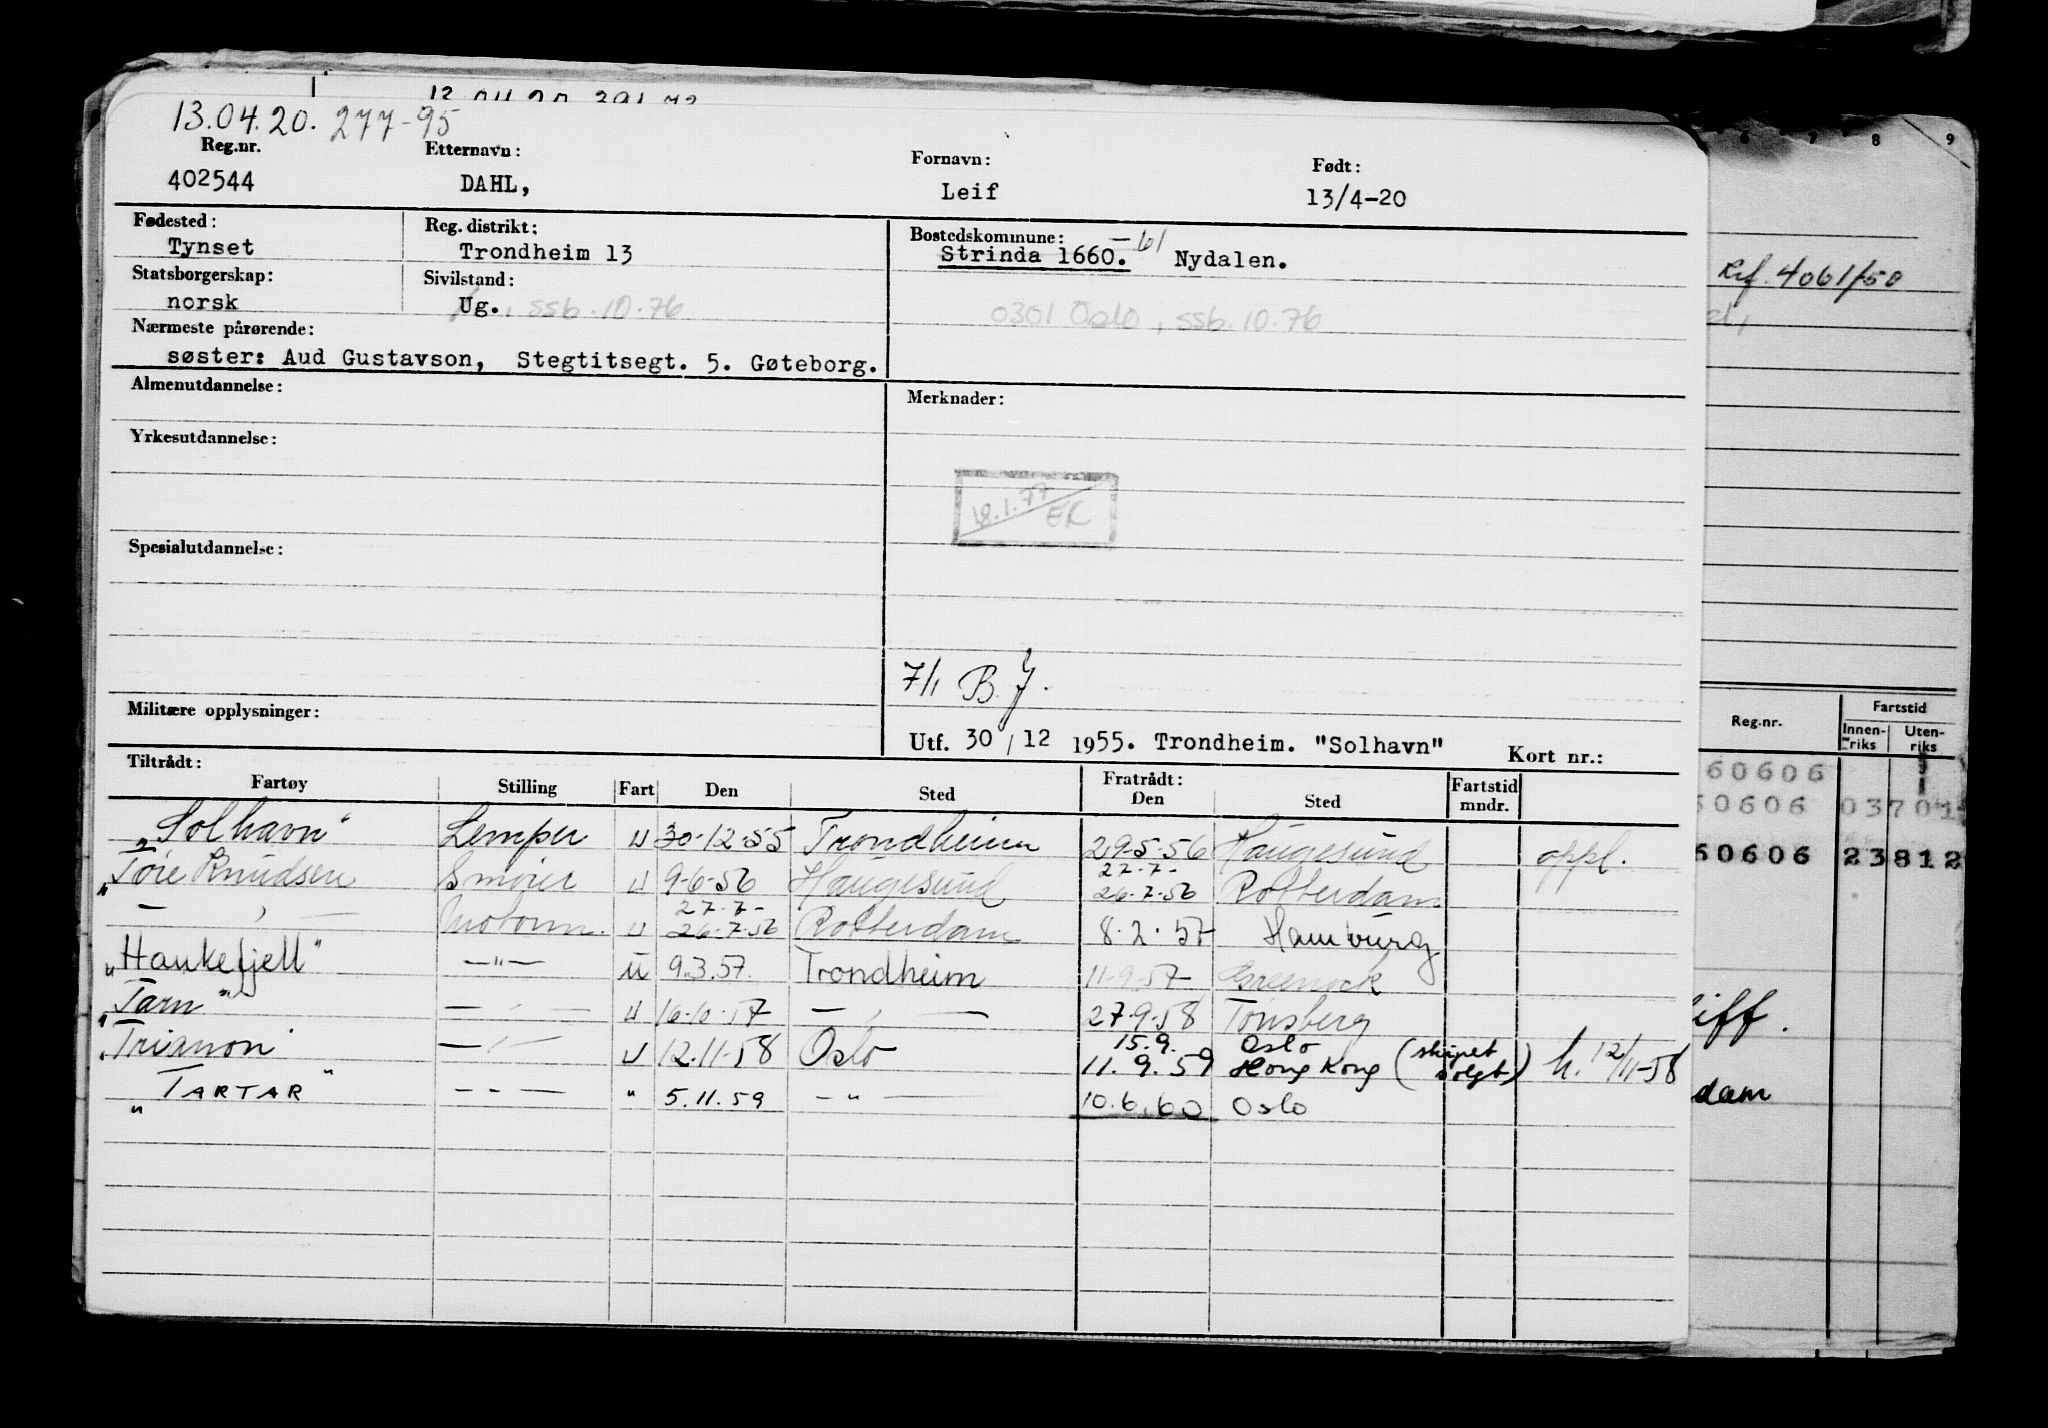 13.04.20. 277-95
Reg.nr. Etternavn: Fornavn: Født:
402544 DAHL, Leif 13/4-20
Fødested: Reg. distrikt: Bostedskommune:
Tynset Trondheim 13 Strinda 1660. -61 Nydalen.
Statsborgerskap: Sivilstand:
norsk Ug. , ssb. 10.76 0301 Oslo, ssb. 10.76
Nærmeste pårørende:
søster: Aud Gustavson, Stegtitsegt. 5. Gøteborg.
Almenutdannelse: Merknader:
Yrkesutdannelse:
18.1.77 EK
Spesialutdannelse:
7/1 B.J.
Militære opplysninger:
Utf. 30/12 1955. Trondheim. "Solhavn" Kort nr.:
Tiltrådt: Fratrådt:
Fartøy Stilling Fart Den Sted Den Sted Fartstid mndr.
"Solhavn" Lemper U 30-12-55 Trondheim 29-5-56 Haugesund oppl.
27.7-
"Tore Knudsen Smører U 9-6-56 Haugesund 26-7-56 Rotterdam
27.7-
— " — Motorm. U 26-7-56 Rotterdam 8-2-57 Hamburg
"Haukefjell" —"— U 9.3.57. Trondheim 11-9-57 Greenock
"Tarn" — " — U 16-10-57 — " — 27-9-58 Tønsberg
15.9. Oslo
"Trianon" — " — U 12.11-58 Oslo 11.9.59 Hong Kong (skipet solgt) h. 12/11-58
"TARTAR" - " - " 5.11.59 - " - 10.6.60 Oslo
6 7 8 9
Ref. 4061/50
Reg.nr. Fartstid
Innenriks Utenriks
60606
60606 03701
60606 23812
iff.
dam